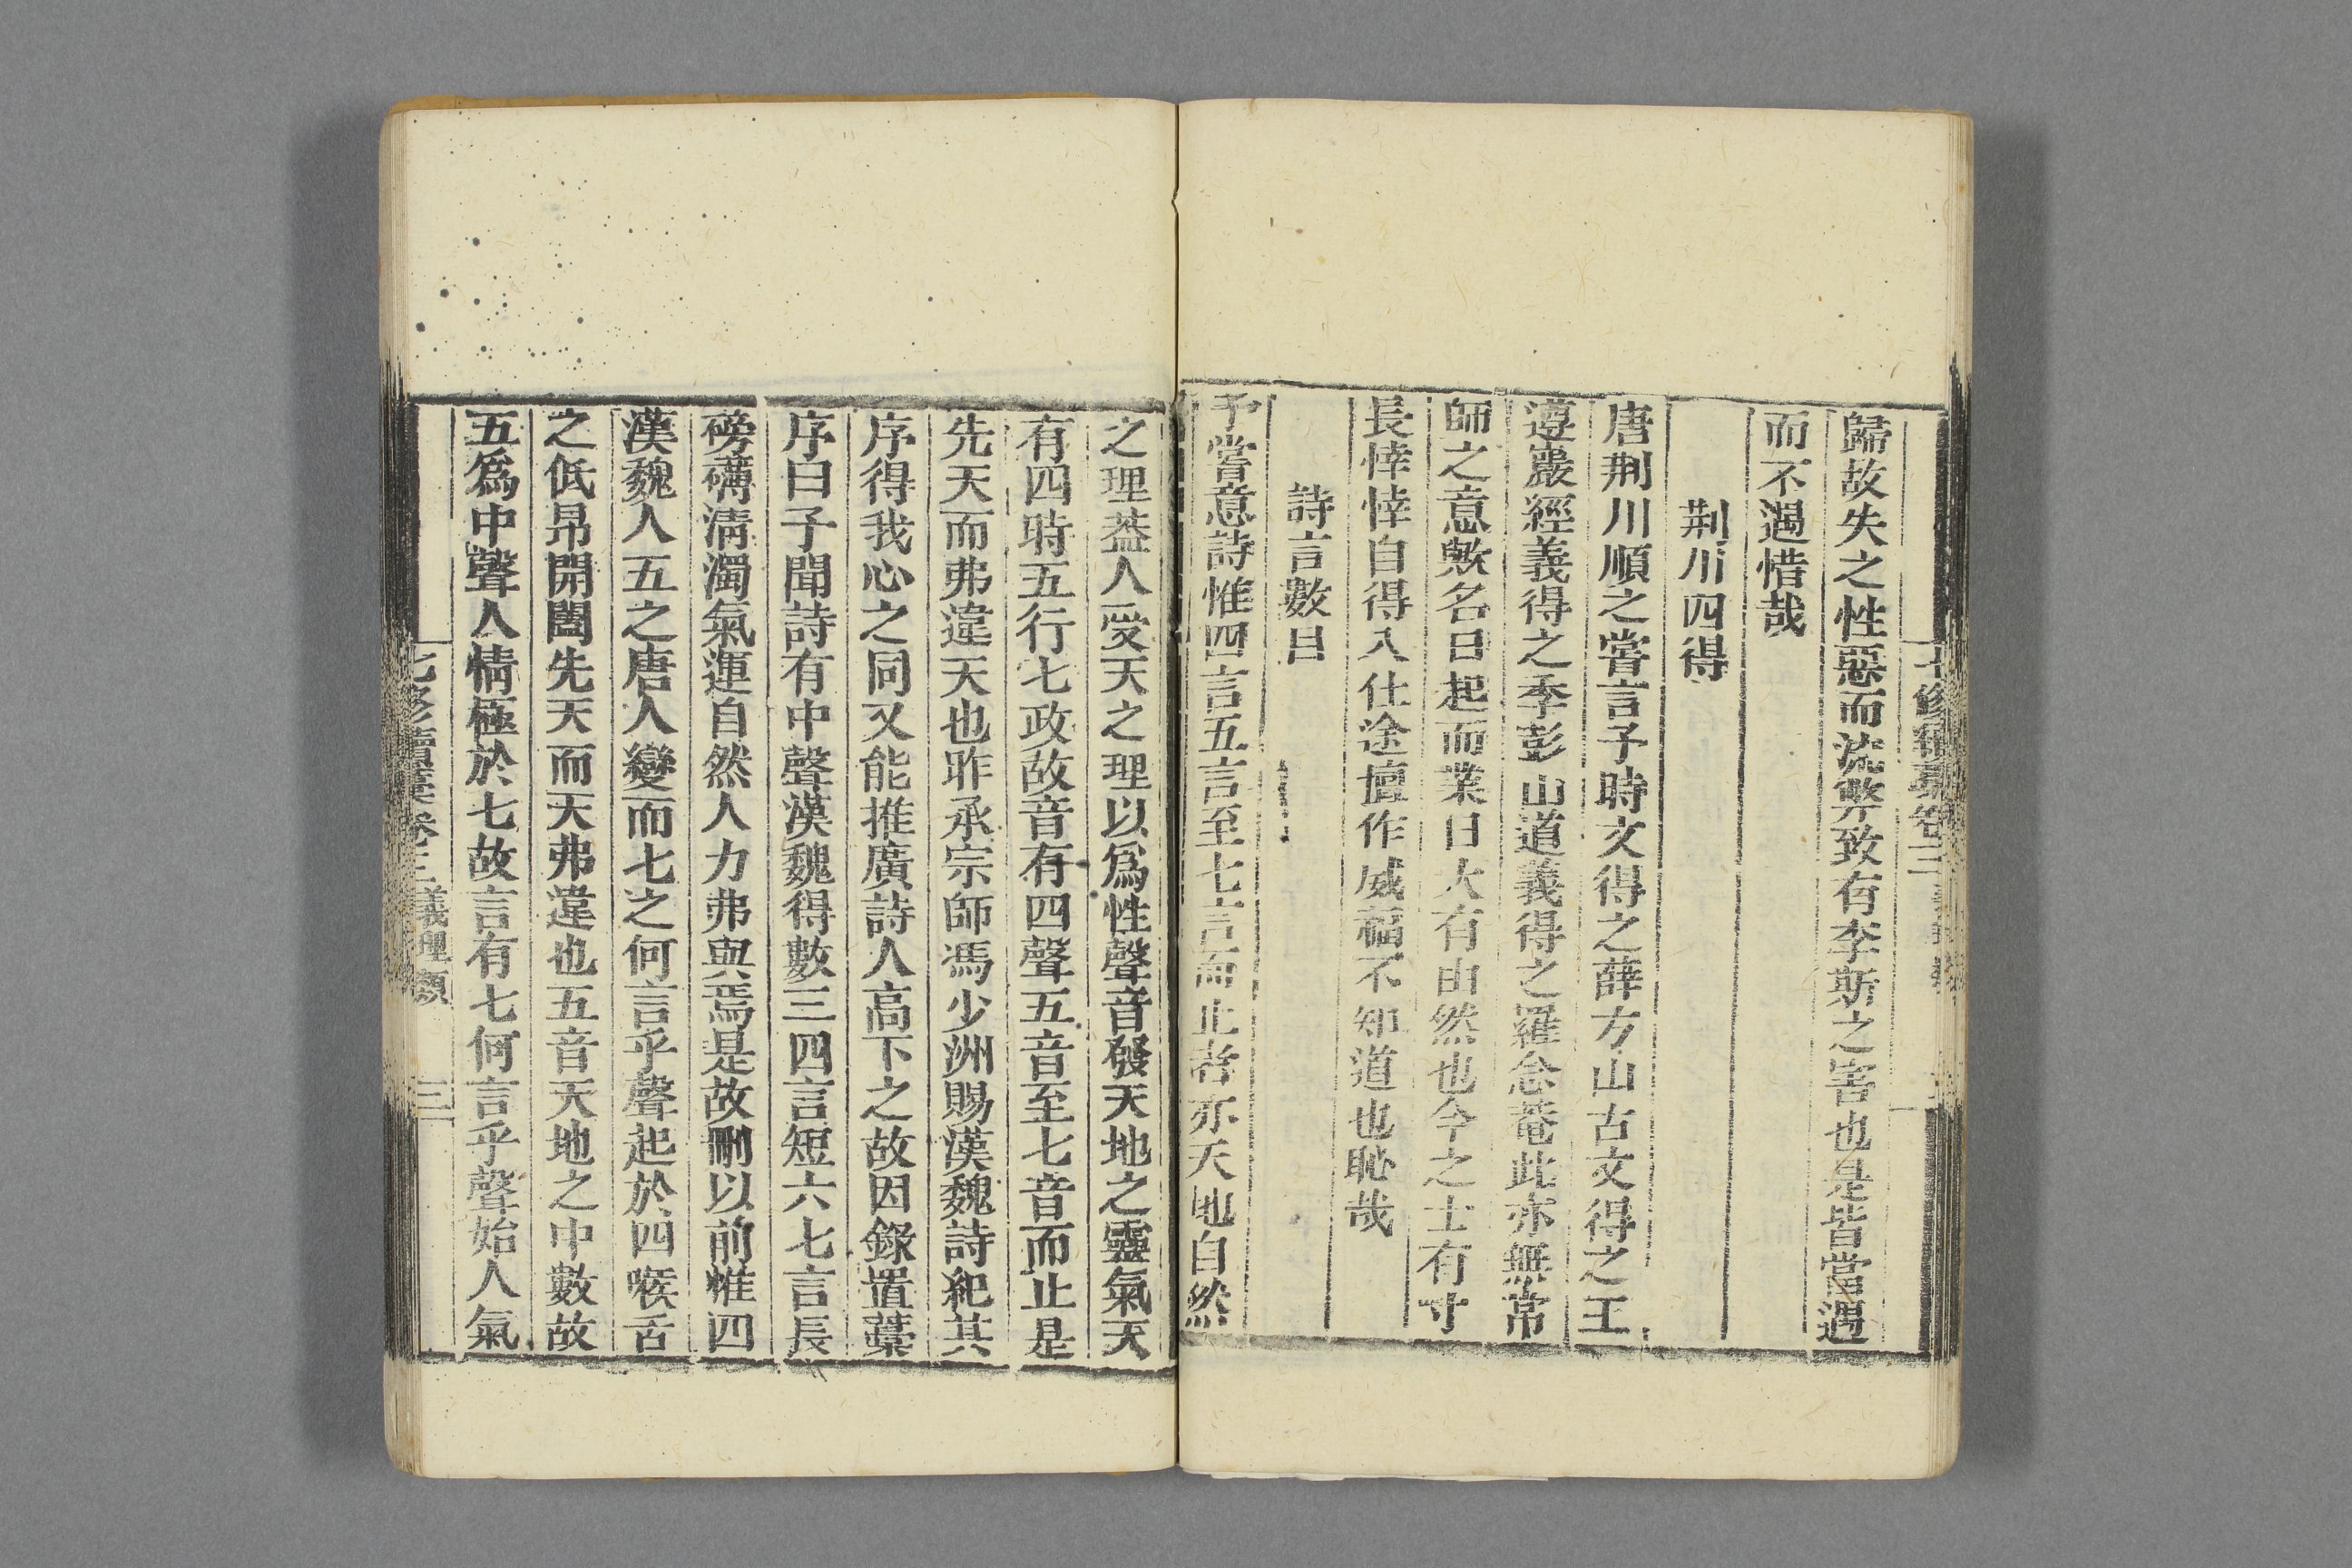 歸故失之性惡而流弊致有李斯之害也是皆當遇
而不遇惜哉
荆川四得
唐荆川順之嘗言予時文得之薛方山古文得之王
遵巖經義得之季彭山道義得之羅念菴此亦無常
師之意歟名日起而業日大有由然也今之士有寸
長悻悻自得入仕途擅作威福不知道也恥哉
詩言數目
予嘗意詩惟四言五言至七言而止者亦天地自然
之理葢人受天之理以爲性聲音發天地之靈氣天
有四時五行七政故音有四聲五音至七音而止是
先天而弗違天也昨承宗師馮少洲賜漢魏詩紀其
序得我心之同又能推廣詩人高下之故因錄置藁
序曰子聞詩有中聲漢魏得數三四言短六七言長
磅礴清濁氣運自然人力弗與焉是故刪以前惟四
漢魏人五之唐人變而七之何言乎聲起於四喉舌
之低昂開闔先天而天弗違也五音天地之中數故
五爲中聲人情極於七故言有七何言乎聲始人氣
七修續藁卷三義理類 三